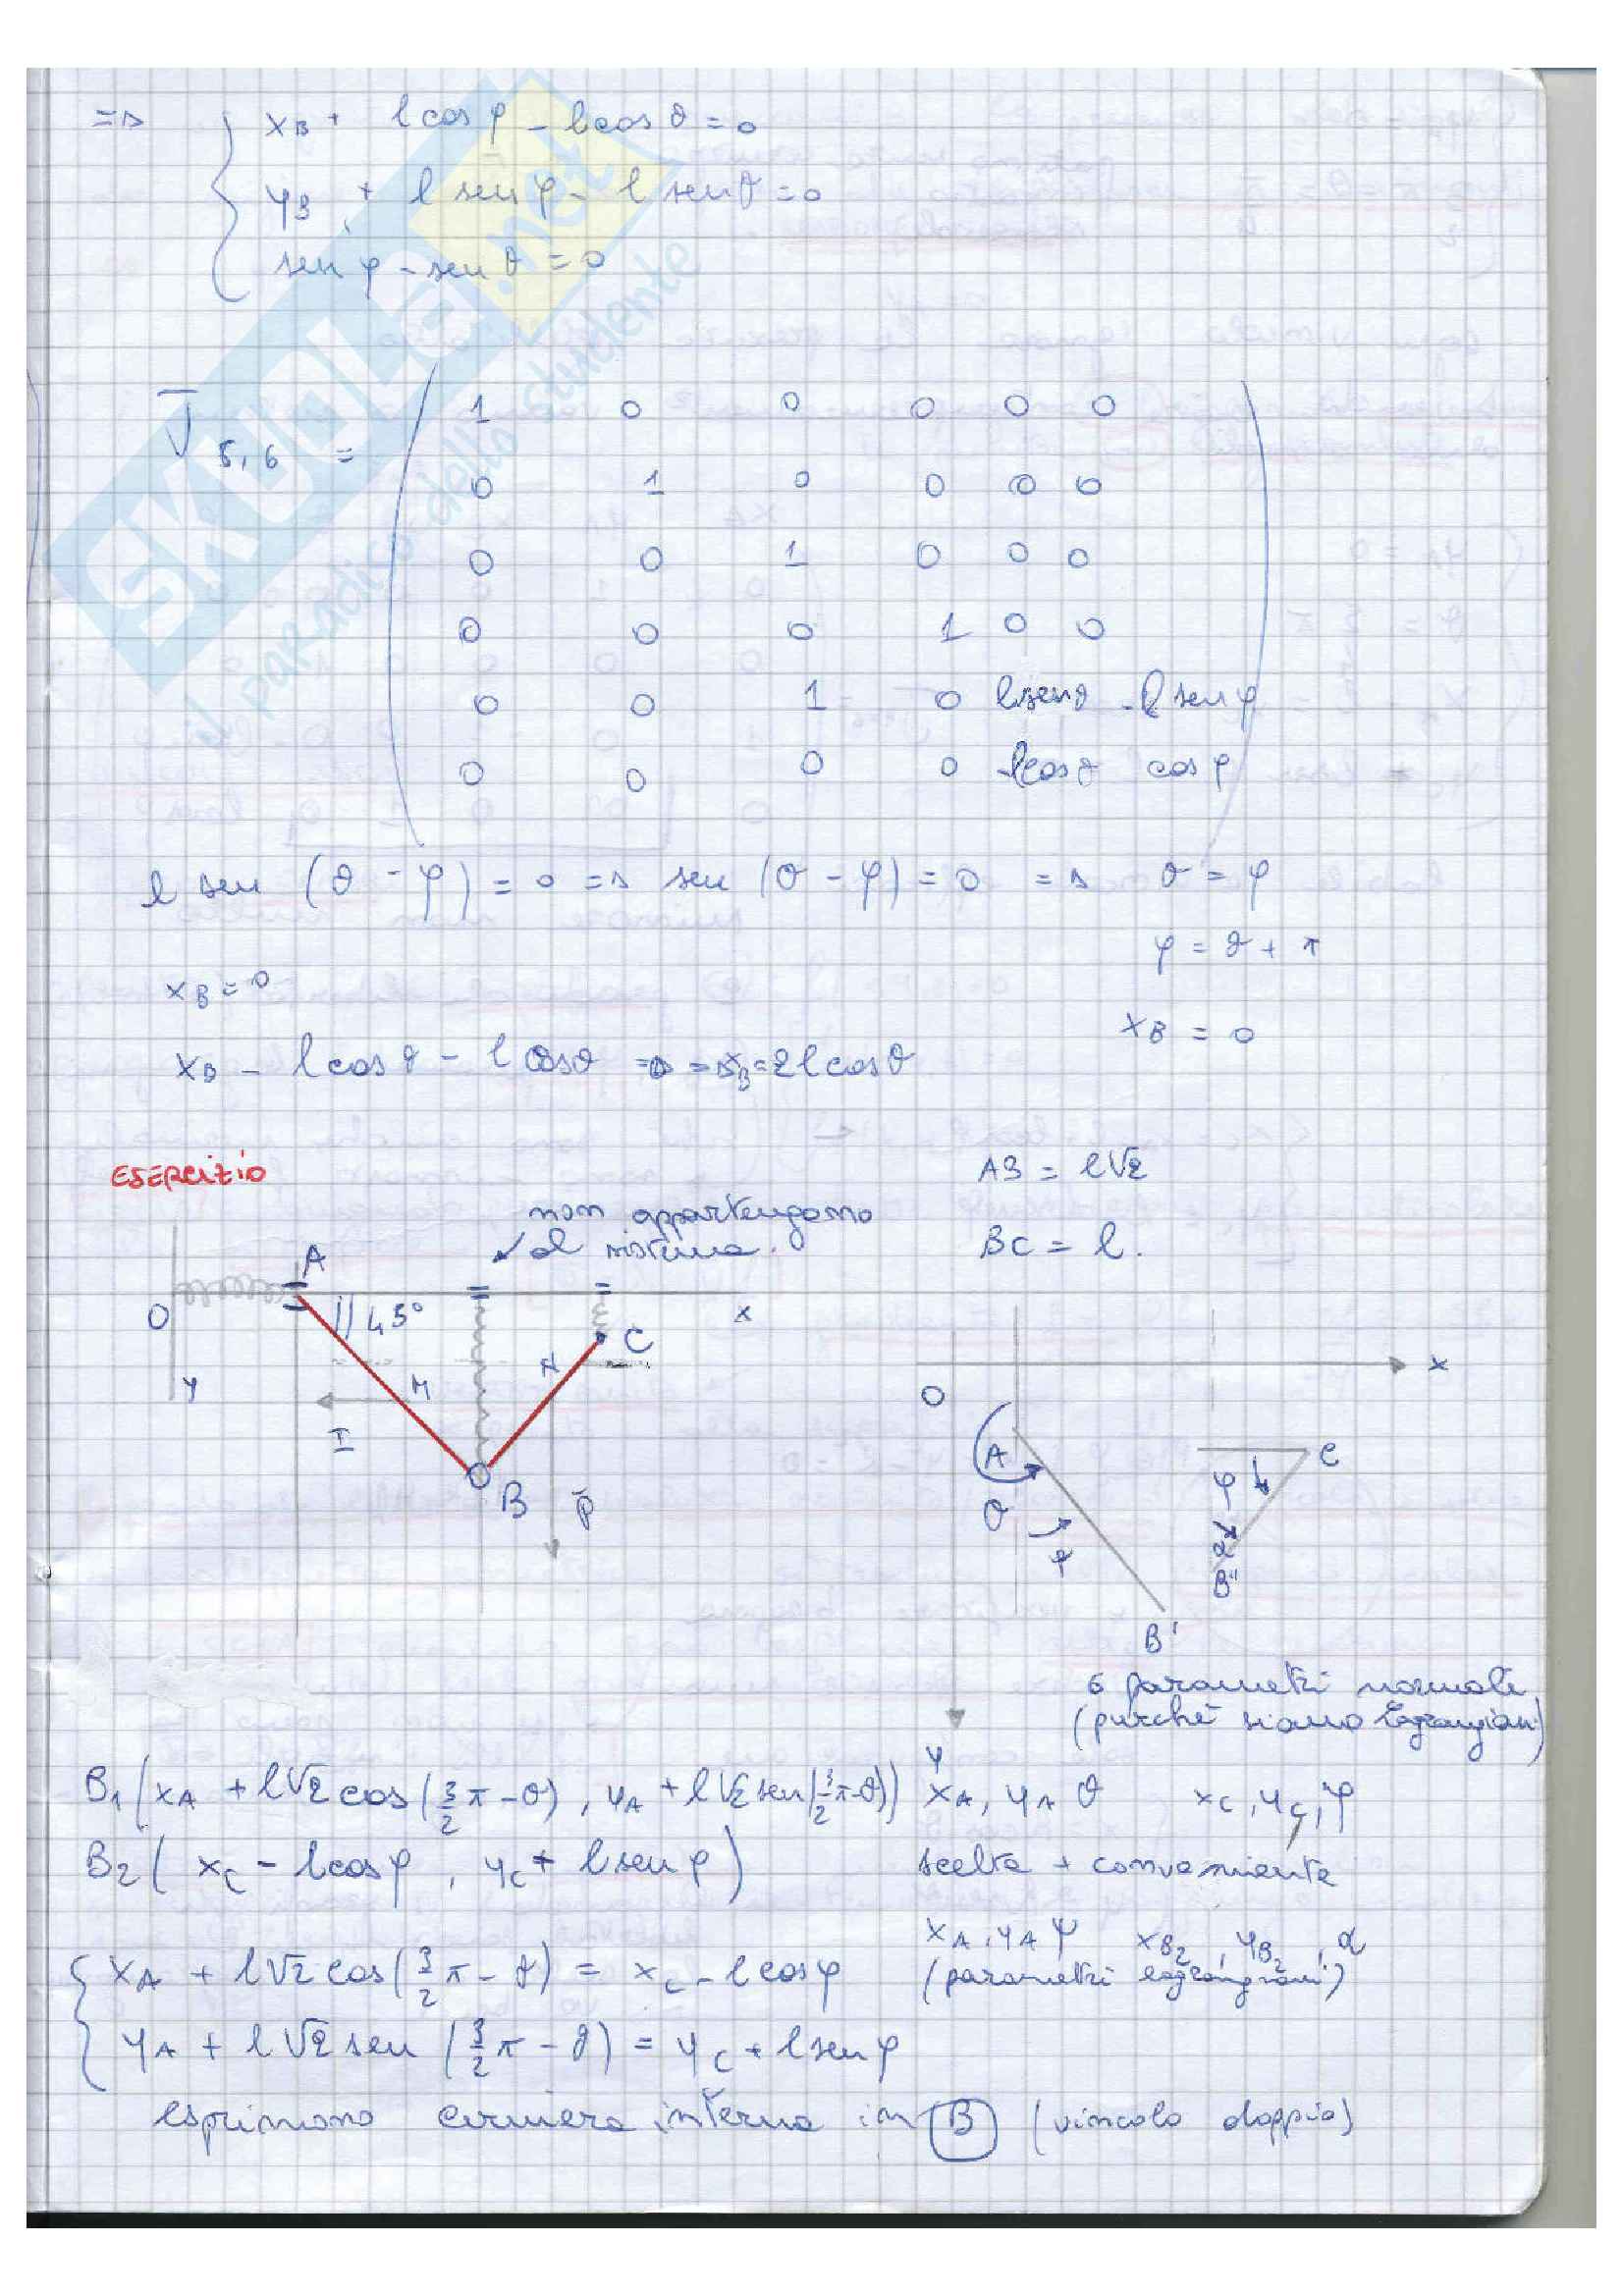 => { xB + l cos φ - l cos θ = 0
yB + l sen φ - l sen θ = 0
sen φ - sen θ = 0
SKUOLA.net
il paradiso dello studente
J 5,6 = ( 1 0 0 0 0 0
0 1 0 0 0 0
0 0 1 0 0 0
0 0 0 1 0 0
0 0 1 0 l sen θ - l sen φ
0 0 0 0 - l cos θ cos φ )
l sen (θ - φ) = 0 => sen (θ - φ) = 0 => θ = φ
φ = θ + π
xB = 0
xB = 0
xB - l cos θ - l cos θ => => xB = 2 l cos θ
ESERCIZIO
AB = l√2
non appartengono
al sistema.
BC = l.
A
O
45°
x
C
N
y
M
I
B
P
x
O
A
C
θ
φ
B''
B'
y
6 parametri normali
(purché siano lagrangiani)
B1 (xA + l√2 cos(3/2 π - θ), yA + l√2 sen(3/2 π - θ)) xA, yA θ xC, yC, φ
B2 (xC - l cos φ, yC + l sen φ) scelta + conveniente
xA, yA ψ xB2, yB2, α
(parametri lagrangiani)
{ xA + l√2 cos(3/2 π - θ) = xC - l cos φ
yA + l√2 sen (3/2 π - θ) = yC + l sen φ
esprimono cerniera interna in B (vincolo doppio)